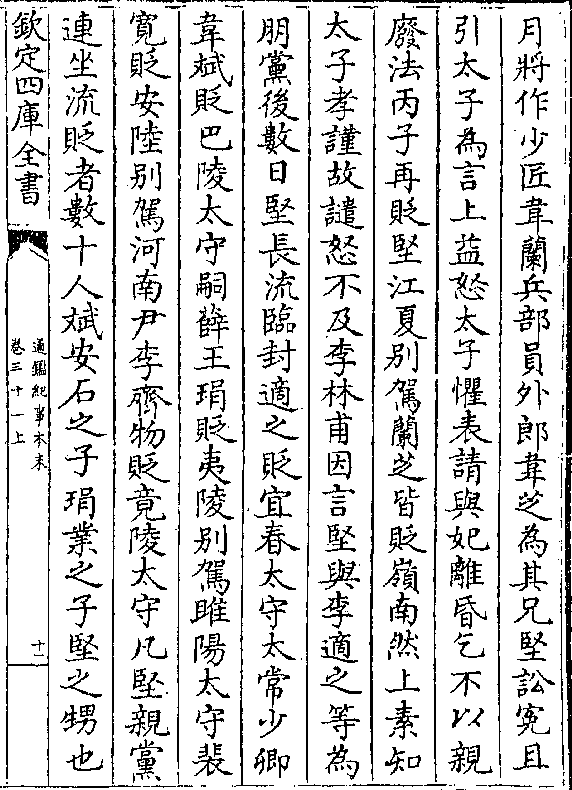 月將作少匠韋蘭兵部員外郎韋芝為其兄堅訟寃且
引太子為言上益怒太子懼表請與妃離昏乞不以親
廢法丙子再貶堅江夏别駕蘭芝皆貶嶺南然上素知
太子孝謹故譴怒不及李林甫因言堅與李適之等為
朋黨後數日堅長流臨封適之貶宜春太守太常少卿
韋斌貶巴陵太守嗣薛王琄貶夷陵别駕睢陽太守裴
寛貶安陸别駕河南尹李齊物貶竟陵太守凡堅親黨
連坐流貶者數十人斌安石之子琄業之子堅之甥也
欽定四庫全書
通鑑紀事本末
卷三十一上
十一